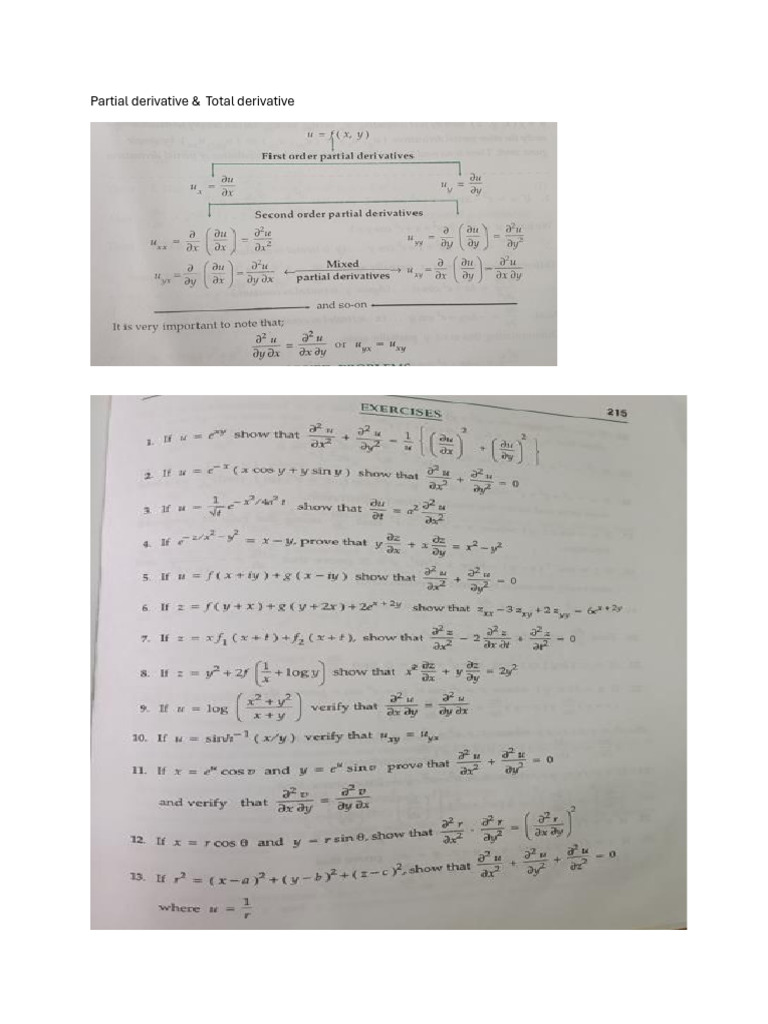 Partial derivative & Total derivative
u = f( x, y )
First order partial derivatives
u_x = ∂u/∂x    u_y = ∂u/∂y
Second order partial derivatives
u_xx = ∂/∂x (∂u/∂x) = ∂²u/∂x²    u_yy = ∂/∂y (∂u/∂y) = ∂²u/∂y²
u_yx = ∂/∂y (∂u/∂x) = ∂²u/∂y ∂x ← Mixed partial derivatives → u_xy = ∂/∂x (∂u/∂y) = ∂²u/∂x ∂y
and so-on
It is very important to note that;
∂²u/∂y ∂x = ∂²u/∂x ∂y or u_yx = u_xy
EXERCISES 215
1. If u = e^xy show that ∂²u/∂x² + ∂²u/∂y² = 1/u { (∂u/∂x)² + (∂u/∂y)² }
2. If u = e^-x ( x cos y + y sin y ) show that ∂²u/∂x² + ∂²u/∂y² = 0
3. If u = 1/√t e^-x²/4a²t show that ∂u/∂t = a² ∂²u/∂x²
4. If e^-z/x² - y² = x - y, prove that y ∂z/∂x + x ∂z/∂y = x² - y²
5. If u = f ( x + iy ) + g ( x - iy ) show that ∂²u/∂x² + ∂²u/∂y² = 0
6. If z = f ( y + x ) + g ( y + 2x ) + 2e^x + 2y show that z_xx - 3 z_xy + 2 z_yy = 6e^x + 2y
7. If z = x f₁ ( x + t ) + f₂ ( x + t ), show that ∂²z/∂x² - 2 ∂²z/∂x ∂t + ∂²z/∂t² = 0
8. If z = y² + 2f (1/x + log y) show that x² ∂z/∂x + y ∂z/∂y = 2y²
9. If u = log (x² + y²/x + y) verify that ∂²u/∂x ∂y = ∂²u/∂y ∂x
10. If u = sinh⁻¹ ( x/y ) verify that u_xy = u_yx
11. If x = e^u cos v and y = e^u sin v prove that ∂²u/∂x² + ∂²u/∂y² = 0
and verify that ∂²v/∂x ∂y = ∂²v/∂y ∂x
12. If x = r cos θ and y = r sin θ, show that ∂²r/∂x² · ∂²r/∂y² = (∂²r/∂x ∂y)²
13. If r² = ( x - a )² + ( y - b )² + ( z - c )², show that ∂²u/∂x² + ∂²u/∂y² + ∂²u/∂z² = 0
where u = 1/r